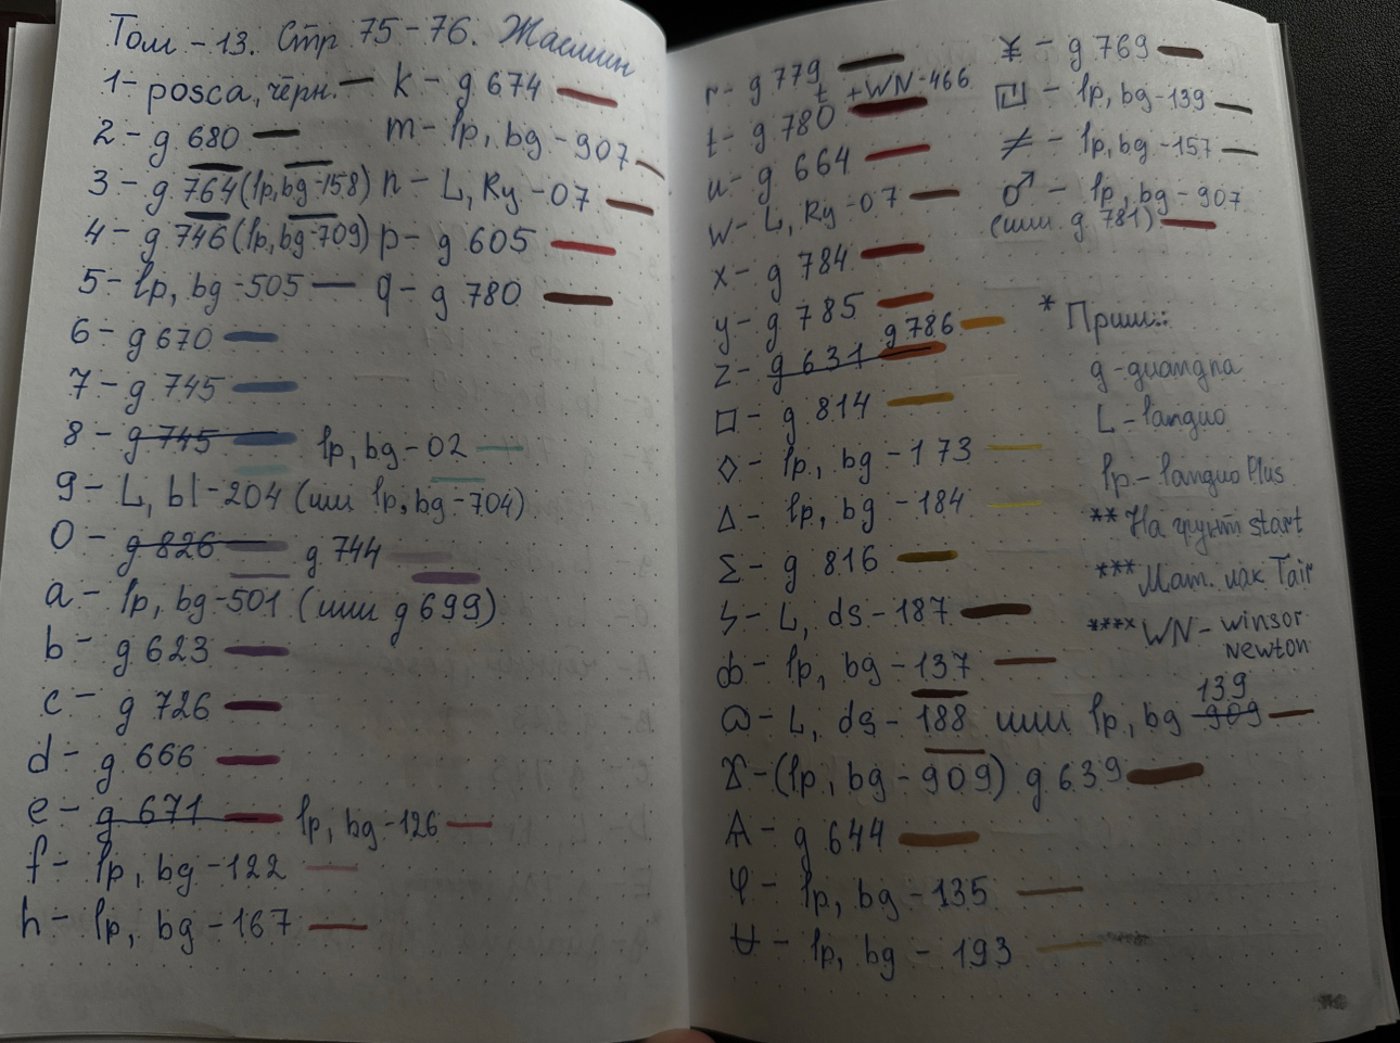 Том - 13. Стр 75-76. Жасмин
1- posca, чёрн.
2 - g 680
3 - g 764 (lp, bg-158)
4 - g 746 (lp, bg-709)
5 - lp, bg -505
6 - g 670
7 - g 745
8 - g 745 lp, bg-02
9 - L, bl-204 (или lp, bg-704)
0 - g 826 g 744
a - lp, bg-501 (или g 699)
b - g 623
c - g 726
d - g 666
e - g 671 lp, bg-126
f - lp, bg-122
h - lp, bg-167
k - g 674
m - lp, bg-907
n - L, Ry-07
p - g 605
q - g 780
r - g 779
t +WN-466
t - g 780
u - g 664
w - L, Ry-07
x - g 784
y - g 785
z - g 631 g 786
□ - g 814
◇ - lp, bg - 173
Δ - lp, bg - 184
Σ - g 816
ϟ - L, ds - 187
ȸ - lp, bg - 137
ɷ - L, ds - 188 или lp, bg 909 139
ɣ - (lp, bg - 909) g 639
A - g 644
φ - lp, bg - 135
Ʉ - lp, bg - 193
¥ - g 769
₪ - lp, bg-139
≠ - lp, bg-157
♂ - lp, bg-907
(или g 781)
* Прим.:
g - guangna
L - languo
lp - languo Plus
** На грунт start
*** Мат. лак Tair
**** WN - winsor
newton